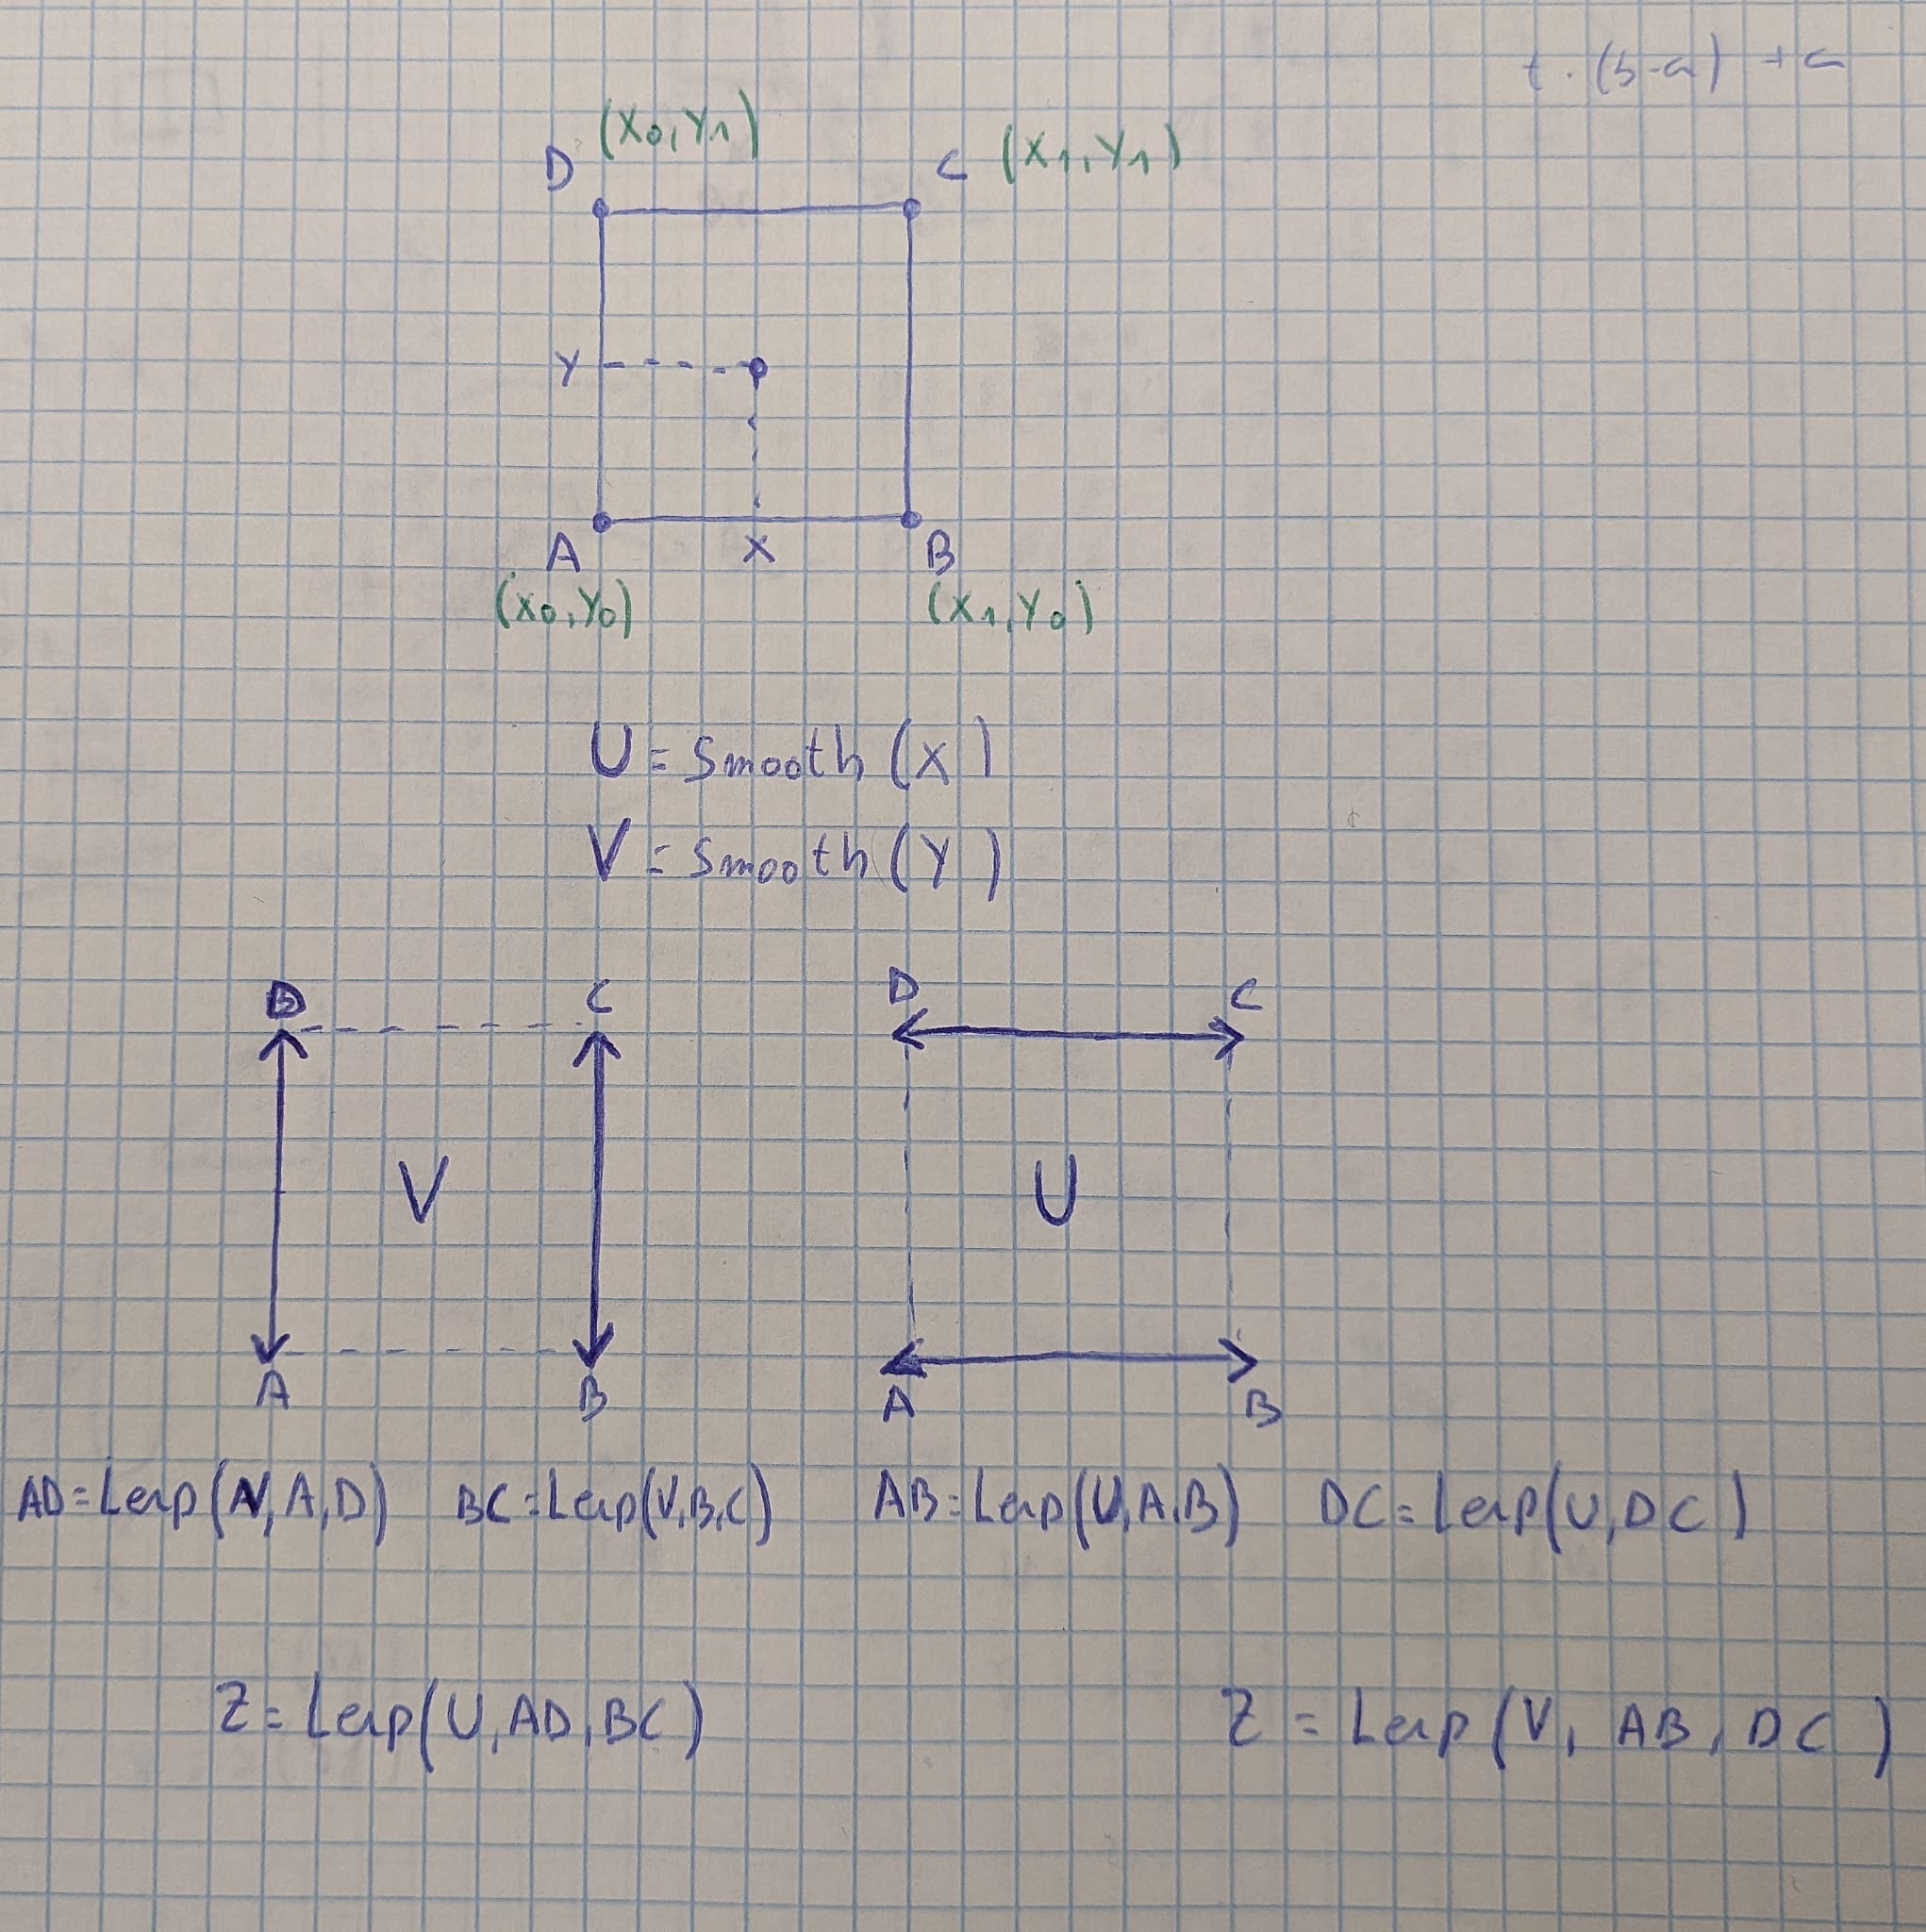 t · (b-a) + a
D (X0,Y1) C (X1,Y1)
Y
A X B
(X0,Y0) (X1,Y0)
U = Smooth (X)
V = Smooth (Y)
D C D C
V U
A B A B
AD = Lerp(V, A, D) BC = Lerp(V, B, C) AB = Lerp(U, A, B) DC = Lerp(U, D C)
Z = Lerp(U, AD, BC) Z = Lerp(V, AB, DC)